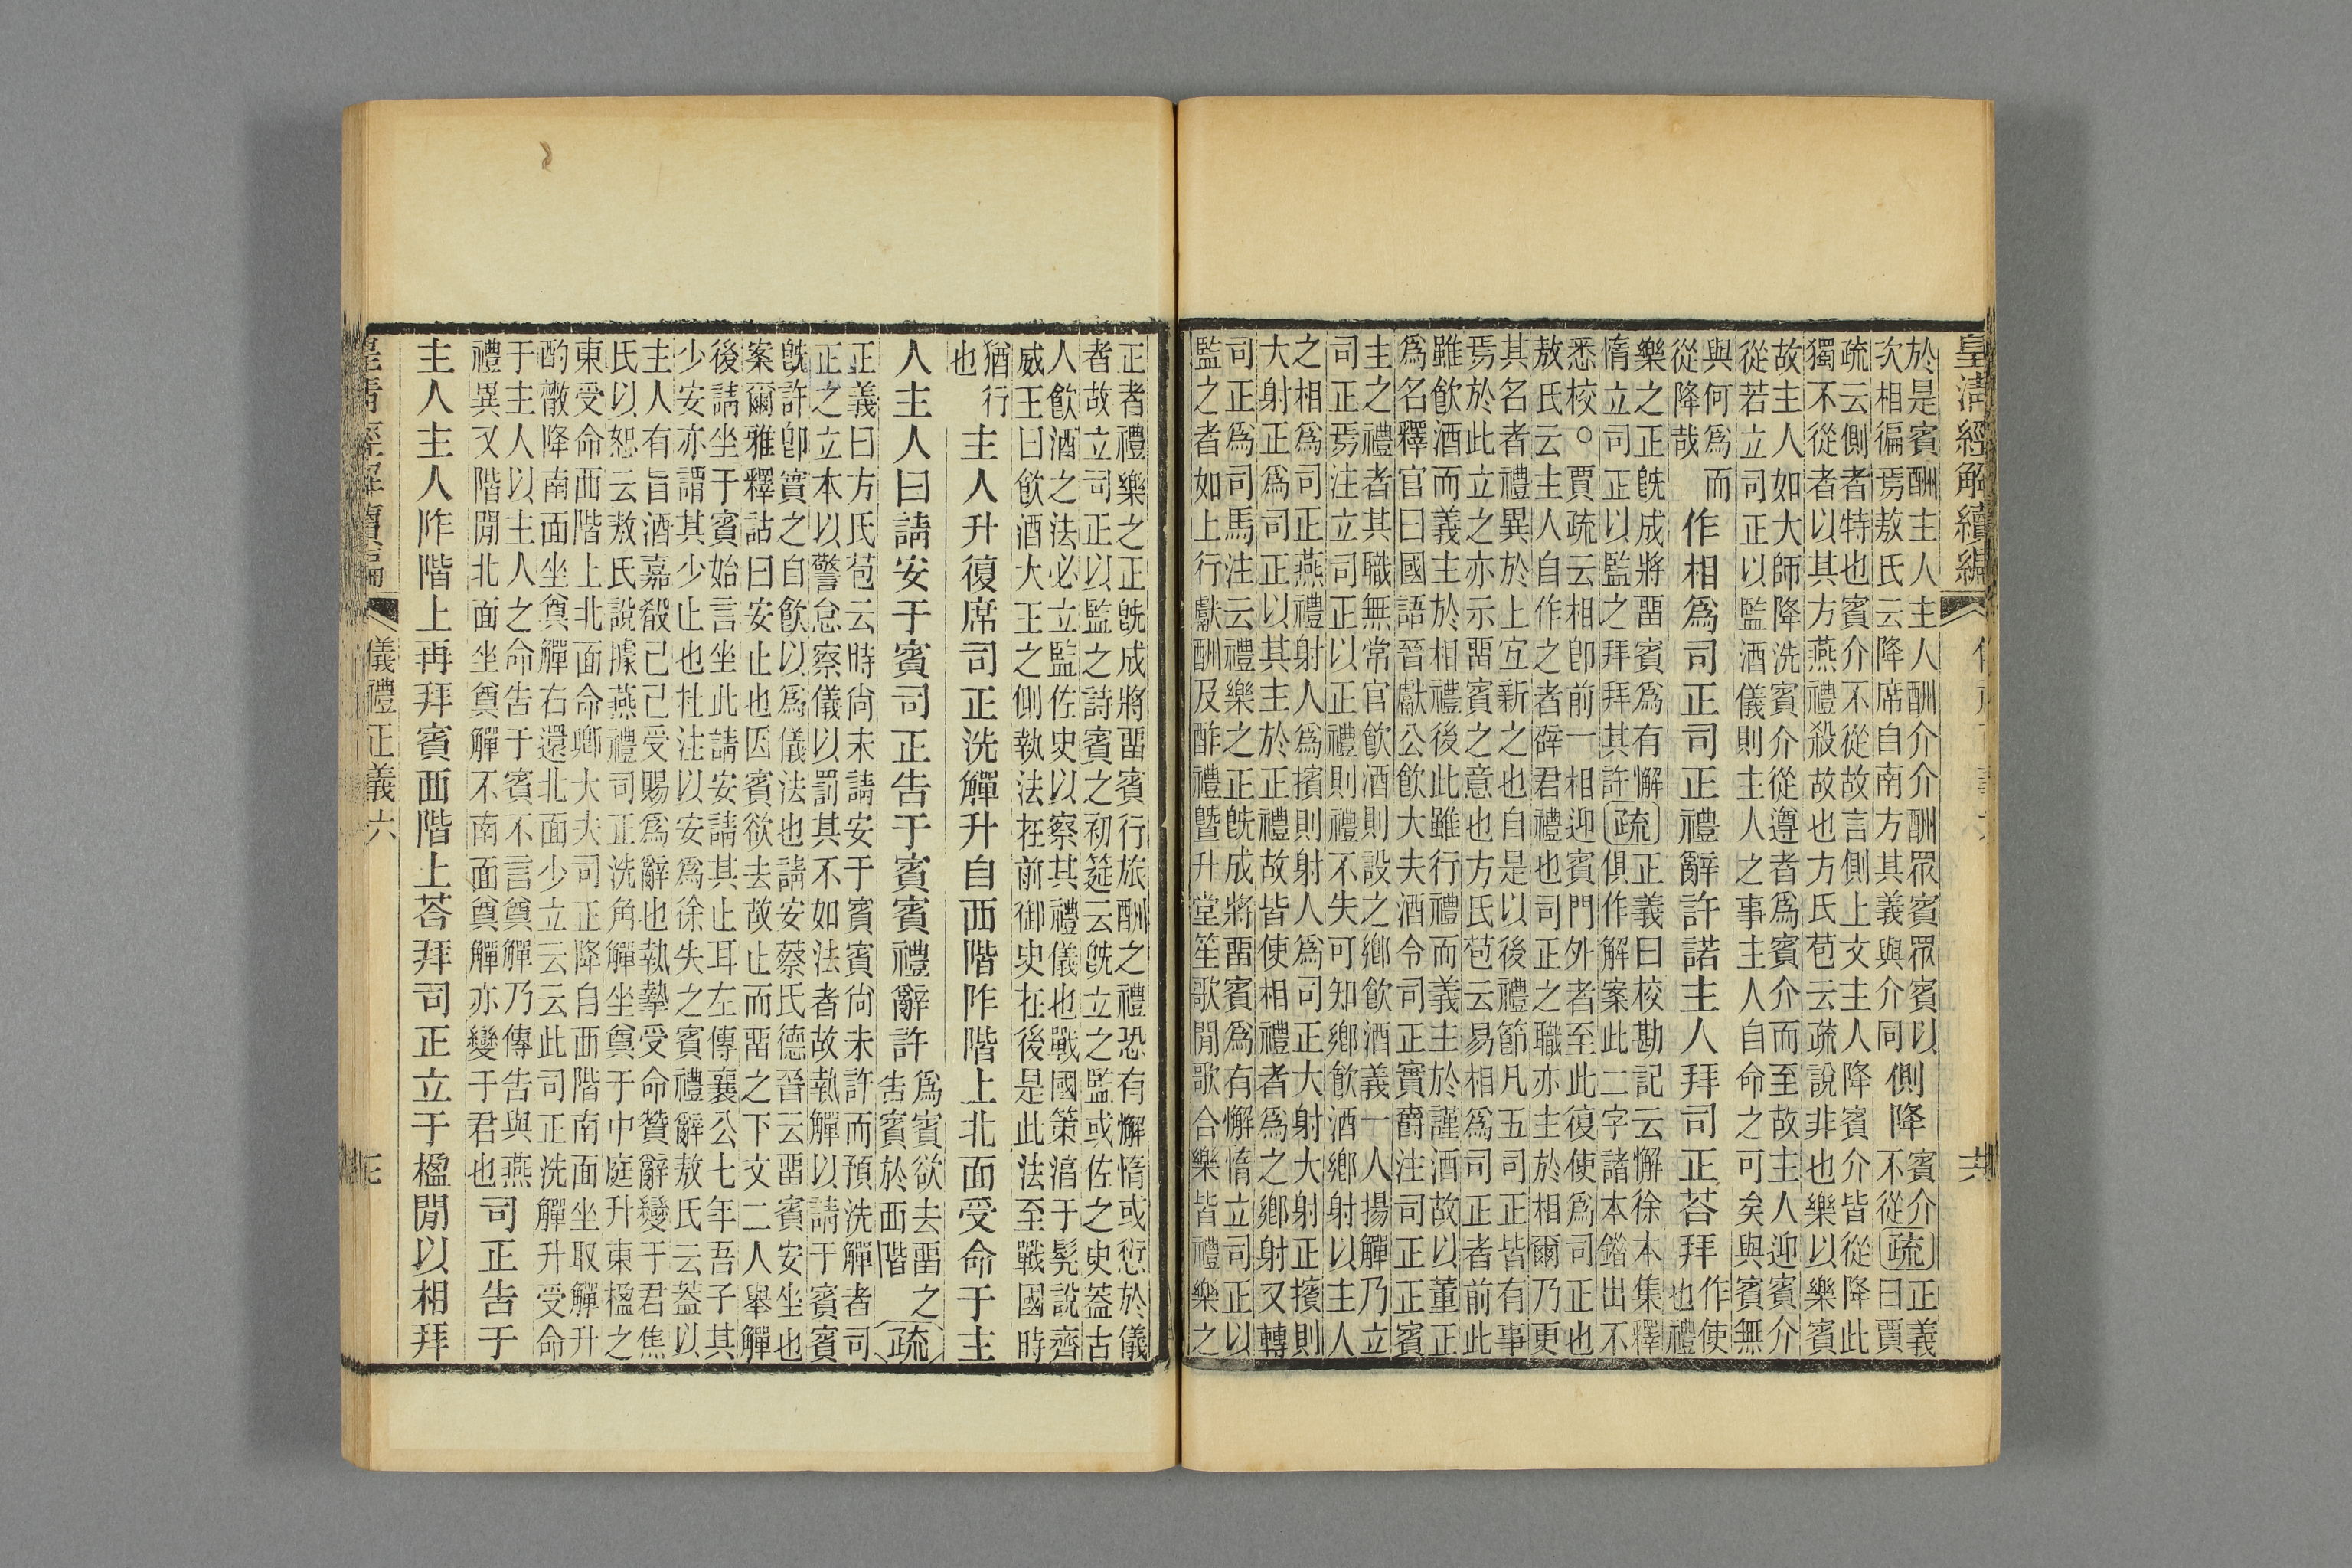 皇清經解續編
於是賓酬主人主人酬介介酬眾賓眾賓以
次相徧焉敖氏云降席自南方其義與介同
側降
賓介
不從
疏
正義
曰賈
疏云側者特也賓介不從故言側上文主人降賓介皆從降此
獨不從者以其方燕禮殺故也方氏苞云疏說非也樂以樂賓
故主人如大師降洗賓介從遵者爲賓介而至故主人迎賓介
從若立司正以監酒儀則主人之事主人自命之可矣與賓無
與何爲而
從降哉
作相爲司正司正禮辭許諾主人拜司正荅拜
作使
也禮
樂之正旣成將畱賓爲有懈
惰立司正以監之拜拜其許
疏
正義曰校勘記云懈徐本集釋
俱作解案此二字諸本錯出不
悉校○賈疏云相卽前一相迎賓門外者至此復使爲司正也
敖氏云主人自作之者辟君禮也司正之職亦主於相爾乃更
其名者禮異於上宜新之也自是以後禮節凡五司正皆有事
焉於此立之亦示畱賓之意也方氏苞云易相爲司正者前此
雖飮酒而義主於相禮後此雖行禮而義主於謹酒故以董正
爲名釋官曰國語晉獻公飮大夫酒令司正實爵注司正正賓
主之禮者其職無常官飮酒則設之鄉飮酒義一人揚觶乃立
司正焉注立司正以正禮則禮不失可知鄉飮酒鄉射以主人
之相爲司正燕禮射人爲擯則射人爲司正大射大射正擯則
大射正爲司正以其主於正禮故皆使相禮者爲之鄉射又轉
司正爲司馬注云禮樂之正旣成將畱賓爲有懈惰立司正以
監之者如上行獻酬及酢禮曁升堂笙歌閒歌合樂皆禮樂之
正者禮樂之正旣成將畱賓行旅酬之禮恐有懈惰或愆於儀
者故立司正以監之詩賓之初筵云旣立之監或佐之史蓋古
人飮酒之法必立監佐史以察其禮儀也戰國策淳于髡說齊
威王曰飮酒大王之側執法在前御史在後是此法至戰國時
猶行
也
主人升復席司正洗觶升自西階阼階上北面受命于主
人主人曰請安于賓司正告于賓賓禮辭許
爲賓欲去畱之
告賓於西階
疏
正義曰方氏苞云時尚未請安于賓賓尚未許而預洗觶者司
正之立本以警怠察儀以罰其不如法者故執觶以請于賓賓
旣許卽實之自飮以爲儀法也請安蔡氏德晉云畱賓安坐也
案爾雅釋詁曰安止也因賓欲去故止而畱之下文二人舉觶
後請坐于賓始言坐此請安請其止耳左傳襄公七年吾子其
少安亦謂其少止也杜注以安爲徐失之賓禮辭敖氏云蓋以
主人有旨酒嘉殽已己受賜爲辭也執摯受命贊辭變于君焦
氏以恕云敖氏說據燕禮司正洗角觶坐奠于中庭升東楹之
東受命西階上北面命卿大夫司正降自西階南面坐取觶升
酌散降南面坐奠觶右還北面少立云云此司正洗觶升受命
于主人以主人之命告于賓不言奠觶乃傳告與燕
禮異又階閒北面坐奠觶不南面奠觶亦變于君也
司正告于
主人主人阼階上再拜賓西階上荅拜司正立于楹閒以相拜
儀禮正義六